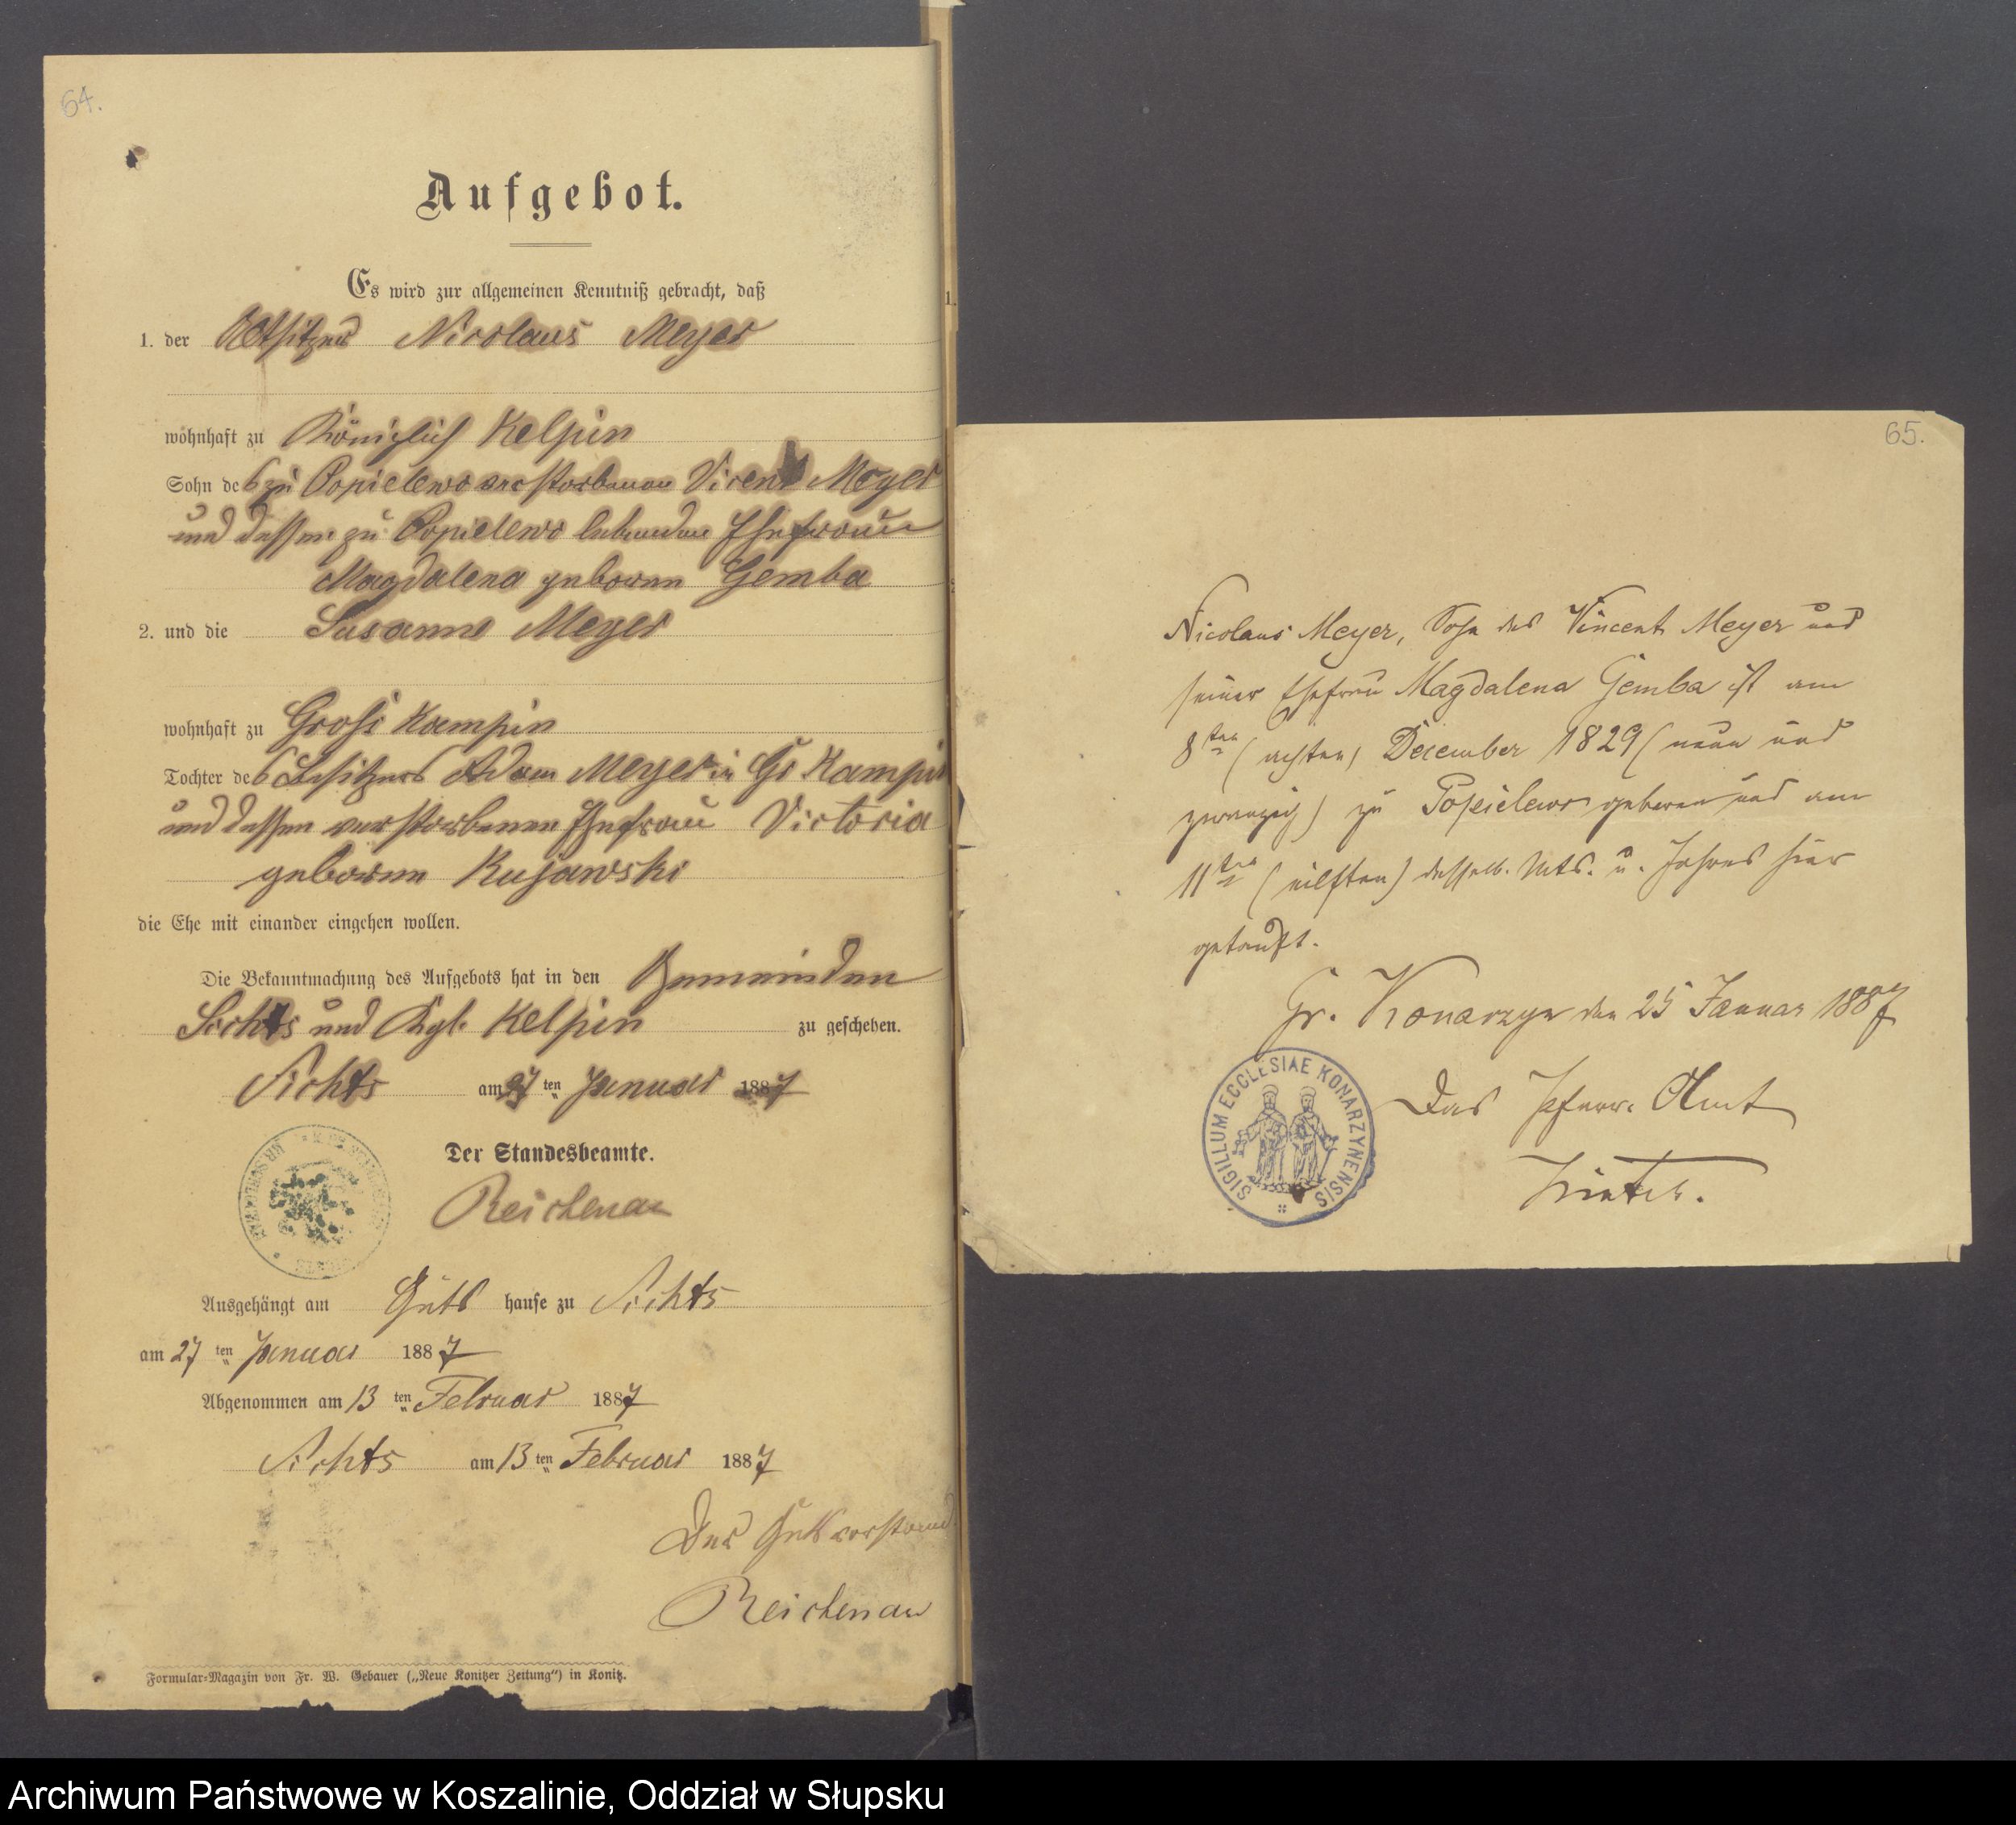 64.
Aufgebot.
Es wird zur allgemeinen Kenntniß gebracht, daß
1. der Altsitzer Nicolaus Meyer
wohnhaft zu Königlich Kelpin
Sohn des zu Popielewo verstorbenen Vicent Meyer
und dessen zu Popielewo lebenden Ehefrau
Magdalena geboren Gemba
2. und die Susanna Meyer
wohnhaft zu Groß Kampin
Tochter des Besitzers Adam Meyer in Gr Kampin
und dessen verstorbenen Ehefrau Victoria
geboren Kujawski
die Ehe mit einander eingehen wollen.
Die Bekanntmachung des Aufgebots hat in den Gemeinden
Sichts und Kgl. Kelpin zu geschehen.
Sichts am 27 ten Januar 1887
Der Standesbeamte.
Reichenau
Ausgehängt am Guts hause zu Sichts
am 27 ten Januar 1887
Abgenommen am 13 ten Februar 1887
Sichts am 13 ten Februar 1887
Der Gutsvorstand
Reichenau
Formular-Magazin von Fr. W. Gebauer („Neue Konitzer Zeitung“) in Konitz.
65.
Nicolaus Meyer, Sohn des Vincent Meyer und
seiner Ehefrau Magdalena Gemba ist am
8ten (achten) December 1829 (neun und
zwanzig) zu Popielewo geboren und am
11ten (eilften) desselb. Mts. u. Jahres hier
getauft.
Gr. Konarzyn den 25 Januar 1887
Das Pfarr-Amt
SIGILLUM ECCLESIAE KONARZYNENSIS
Archiwum Państwowe w Koszalinie, Oddział w Słupsku